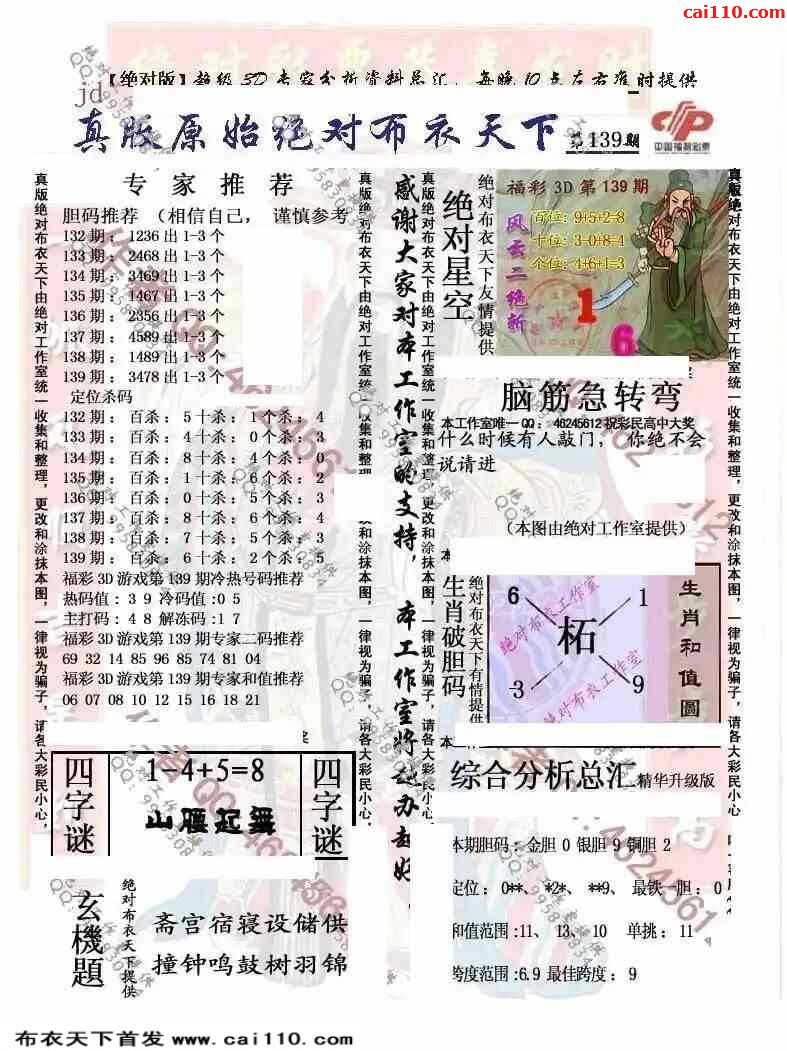 cai110.com
【绝对版】超级3D专家分析资料总汇，每晚10点左右准时提供
jd
真版原始绝对布衣天下
第139期
中国福利彩票
真版绝对布衣天下由绝对工作室统一收集和整理，更改和涂抹本图，一律视为骗子，请各大彩民小心，
专家推荐
胆码推荐 （相信自己， 谨慎参考
132期：1236出1-3个
133期：2468出1-3个
134期：3469出1-3个
135期：1467出1-3个
136期：2356出1-3个
137期：4589出1-3个
138期：1489出1-3个
139期：3478出1-3个
定位杀码
132期：百杀：5十杀：1个杀：4
133期：百杀：4十杀：0个杀：3
134期：百杀：8十杀：4个杀：0
135期：百杀：1十杀：6个杀：2
136期：百杀：0十杀：5个杀：3
137期：百杀：8十杀：6个杀：4
138期：百杀：7十杀：5个杀：3
139期：百杀：6十杀：2个杀：5
福彩3D游戏第139期冷热号码推荐
热码值：3 9 冷码值:0 5
主打码：4 8 解冻码:1 7
福彩3D游戏第139期专家二码推荐
69 32 14 85 96 85 74 81 04
福彩3D游戏第139期专家和值推荐
06 07 08 10 12 15 16 18 21
四字谜
1-4+5=8
山腰起舞
四字谜
玄機題
绝对布衣天下提供
斋宫宿寝设储供
撞钟鸣鼓树羽锦
感谢大家对本工作室的支持，本工作室将越办越好
绝对星空
绝对布衣天下友情提供
福彩3D第139期
风云二绝析
百位:9+5+2=8
十位:3-0+8=4
个位:4+6+1=3
1
6
脑筋急转弯
本工作室唯一QQ：46245612祝彩民高中大奖
什么时候有人敲门，你绝不会
说请进
（本图由绝对工作室提供）
生肖破胆码
绝对布衣天下有情提供
6
1
柘
3
9
绝对布衣工作室
绝对布衣工作室
生肖和值圖
综合分析总汇 精华升级版
本期胆码：金胆 0 银胆 9 铜胆 2
定位：0**、 *2*、 **9、 最铁一胆：0
和值范围:11、 13、 10 单挑：11
跨度范围:6.9 最佳跨度：9
布衣天下首发 www.cai110.com